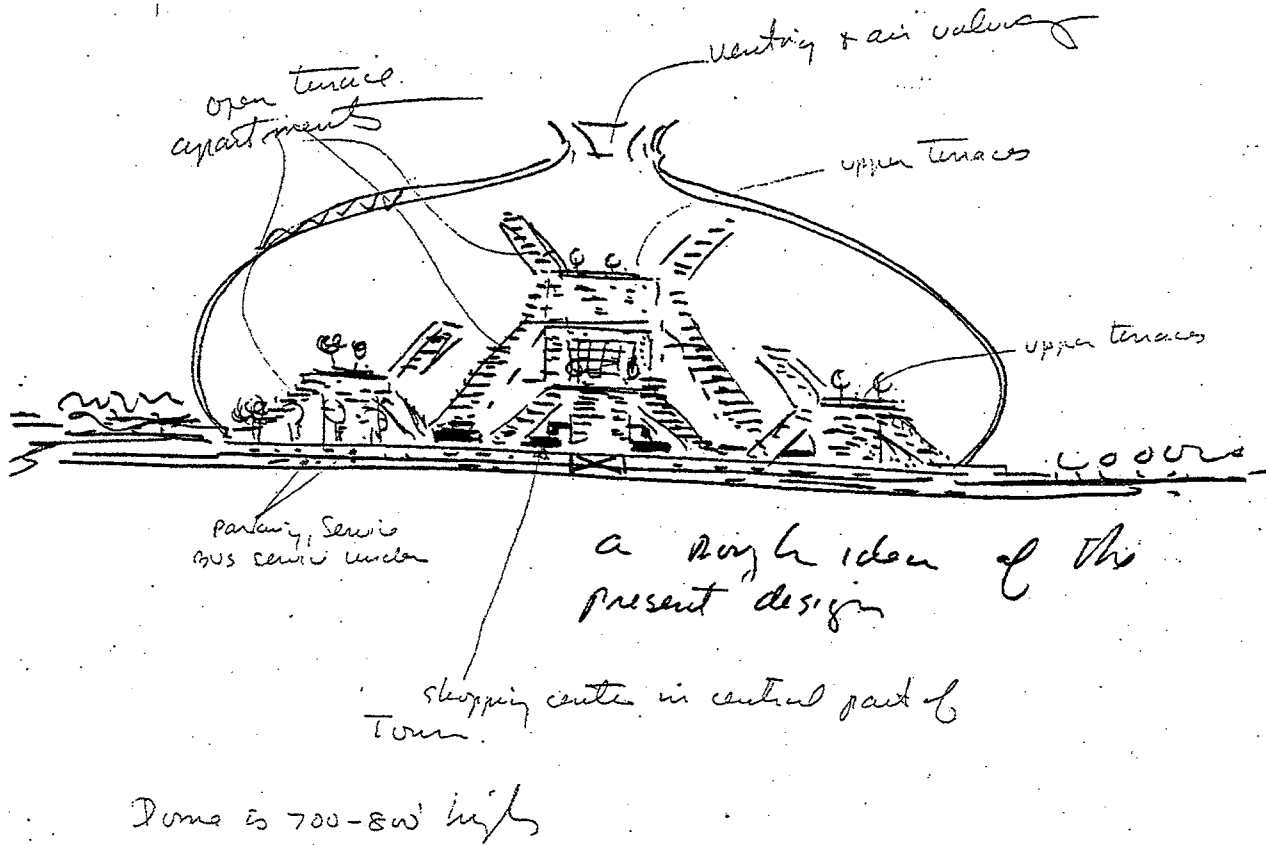 venting & air valving
open terrace
apartments
upper terraces
upper terraces
Parking, Service
BUS service under
a rough idea of the
present design
shopping center in central part of
Town.
Dome is 700-800' high